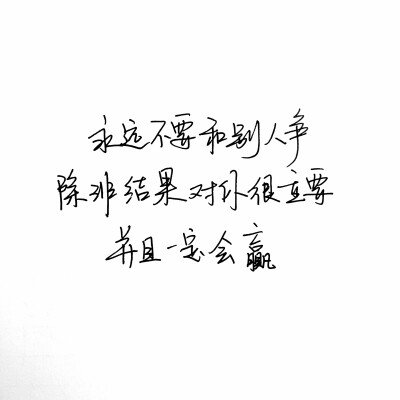 永远不要和别人争
除非结果对你很重要
并且一定会赢